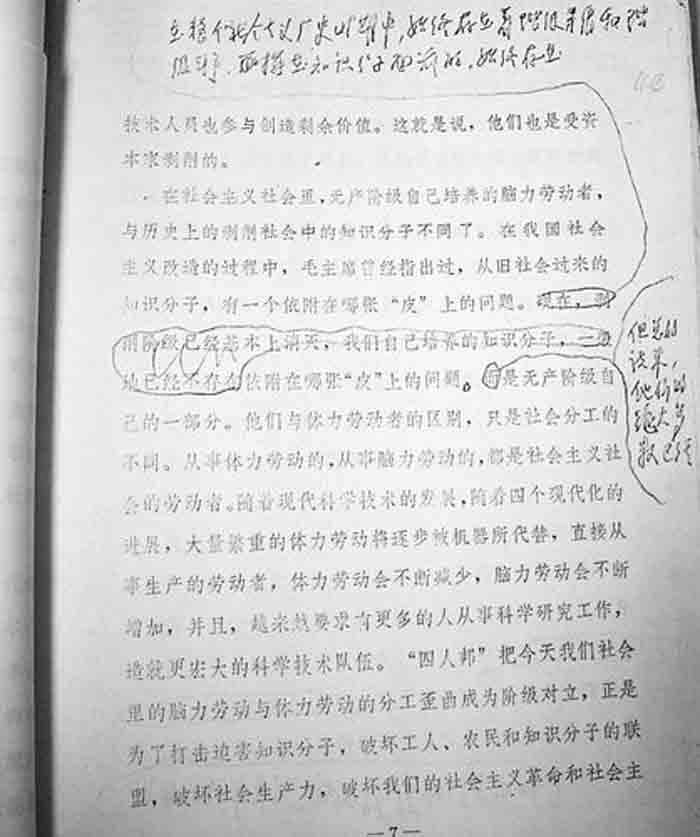 在整个社会主义历史时期中，始终存在着阶级矛盾和阶
级斗争
始终存在
技术人员也参与创造剩余价值。这就是说，他们也是受资
本家剥削的。
在社会主义社会里，无产阶级自己培养的脑力劳动者，
与历史上的剥削社会中的知识分子不同了。在我国社会
主义改造的过程中，毛主席曾经指出过，从旧社会过来的
知识分子，有一个依附在哪张“皮”上的问题。现在，剥
削阶级已经基本上消灭，我们自己培养的知识分子，一般
地已经不存在依附在哪张“皮”上的问题。而是无产阶级自
己的一部分。他们与体力劳动者的区别，只是社会分工的
不同。从事体力劳动的，从事脑力劳动的，都是社会主义社
会的劳动者。随着现代科学技术的发展，随着四个现代化的
进展，大量繁重的体力劳动将逐步被机器所代替，直接从
事生产的劳动者，体力劳动会不断减少，脑力劳动会不断
增加，并且，越来越要求有更多的人从事科学研究工作，
造就更宏大的科学技术队伍。“四人邦”把今天我们社会
里的脑力劳动与体力劳动的分工歪曲成为阶级对立，正是
为了打击迫害知识分子，破坏工人、农民和知识分子的联
盟，破坏社会生产力，破坏我们的社会主义革命和社会主
但总的
说来，
他们的
绝大多
数已经
—7—